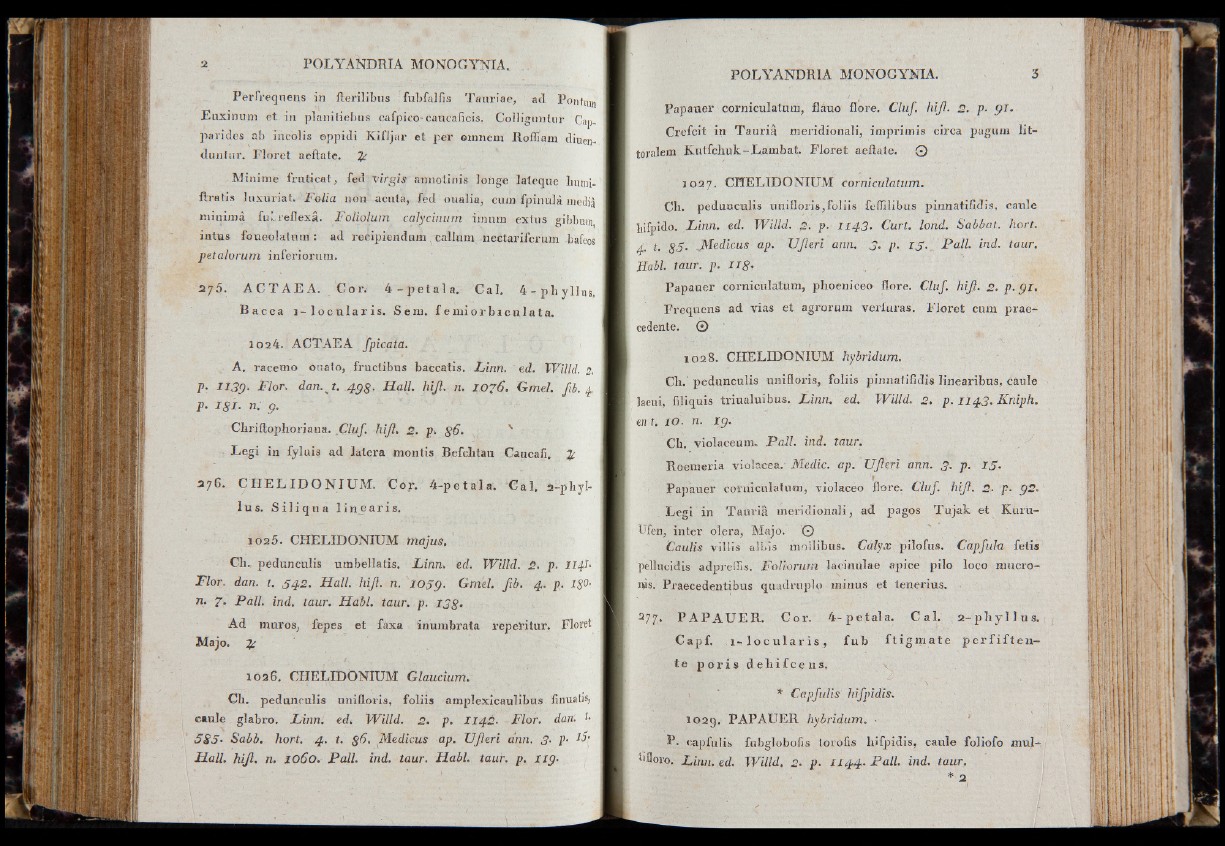 2 POLYANDRIA MONOGYNIA.
Perfrequens in ſterilibus ſubſalſis Tauriae, ad Pontum
Euxinum et in planitiebus caſpico-caucaſicis. Colliguntur Cap-
parides ab incolis oppidi Kiſljar et per omnem Roſſiam diuen-
duntur. Floret aeſtate. ♃
Minime fruticat, ſed virgis annotinis longe lateque humi-
ſtratis luxuriat. Folia non acuta, ſed oualia, cum ſpinulâ mediâ
minimâ ſubreflexâ. Foliolum calycinum imum extus gibbum,
intus foueolatum: ad recipiendum callum nectariferum baſeos
petalorum inferiorum.
275. ACTAEA. Cor. 4-petala. Cal. 4-phyllus,
Bacca 1-locularis. Sem. ſemiorbiculata.
1024. ACTAEA ſpicata.
A. racemo ouato, fructibus baccatis. Linn. ed. Willd. 2.
p. 1139. Flor. dan. t. 498. Hall. hiſt. n. 1076. Gmel. ſib. 4.
p. 181. n. 9.
Chriſtophoriana. Cluſ. hiſt. 2. p. 86.
Legi in ſyluis ad latera montis Beſchtau Caucaſi. ♃
276. CHELIDONIUM. Cor. 4-petala. Cal. 2-phyl-
lus. Siliqua linearis.
1025. CHELIDONIUM majus.
Ch. pedunculis umbellatis. Linn. ed. Willd. 2. p. 1141.
Flor. dan. t. 542. Hall. hiſt. n. 1059. Gmel. ſib. 4. p. 180.
n. 7. Pall. ind. taur. Habl. taur. p. 138.
Ad muros, ſepes et ſaxa inumbrata reperitur. Floret
Majo. ♃
1026. CHELIDONIUM Glaucium.
Ch. pedunculis unifloris, foliis amplexicaulibus ſinuatis,
caule glabro. Linn. ed. Willd. 2. p. 1142. Flor. dan. t.
585. Sabb. hort. 4. t. 86. Medicus ap. Uſteri ann. 3. p. 15.
Hall. hiſt. n. 1060. Pall. ind. taur. Habl. taur. p. 119.
POLYANDRIA MONOGYNIA. 3
Papauer corniculatum, flauo flore. Cluſ. hiſt. 2. p. 91.
Creſcit in Tauriâ meridionali, imprimis circa pagum lit-
toralem Kutſchuk-Lambat. Floret aeſtate. ☉
1027. CHELIDONIUM corniculatum.
Ch. pedunculis unifloris, foliis ſeſſilibus pinnatifidis, caule
hiſpido. Linn. ed. Willd. 2. p. 1143. Curt. lond. Sabbat. hort.
4. t. 85. Medicus ap. Uſteri ann. 3. p. 15. Pall. ind. taur.
Habl. taur. p. 118.
Papauer corniculatum, phoeniceo flore. Cluſ. hiſt. 2. p. 91.
Frequens ad vias et agrorum verſuras. Floret cum prae-
cedente. ☉
1028. CHELIDONIUM hybridum.
Ch. pedunculis unifloris, foliis pinnatifidis linearibus, caule
laeui, ſiliquis triualuibus. Linn. ed. Willd. 2. p. 1143. Kniph.
en t. 10. n. 19.
Ch. violaceum. Pall. ind. taur.
Roemeria violacea. Medic. ap. Uſteri ann. 3. p. 15.
Papauer corniculatum, violaceo flore. Cluſ. hiſt. 2. p. 92.
Legi in Tauriâ meridionali, ad pagos Tujak et Kuru-
Uſen, inter olera, Majo. ☉
Caulis villis albis mollibus. Calyx piloſus. Capſula ſetis
pellucidis adpreſſis. Foliorum lacinulae apice pilo loco mucro-
nis. Praecedentibus quadruplo minus et tenerius.
277. PAPAUER. Cor. 4-petala. Cal. 2-phyllus.
Capſ. 1-locularis, ſub ſtigmate perſiſten-
te poris dehiſcens.
* Capſulis hiſpidis.
1029. PAPAUER hybridum.
P. capſulis ſubgloboſis toroſis hiſpidis, caule folioſo mul-
tifloro. Linn. ed. Willd. 2. p. 1144. Pall. ind. taur.
* 2